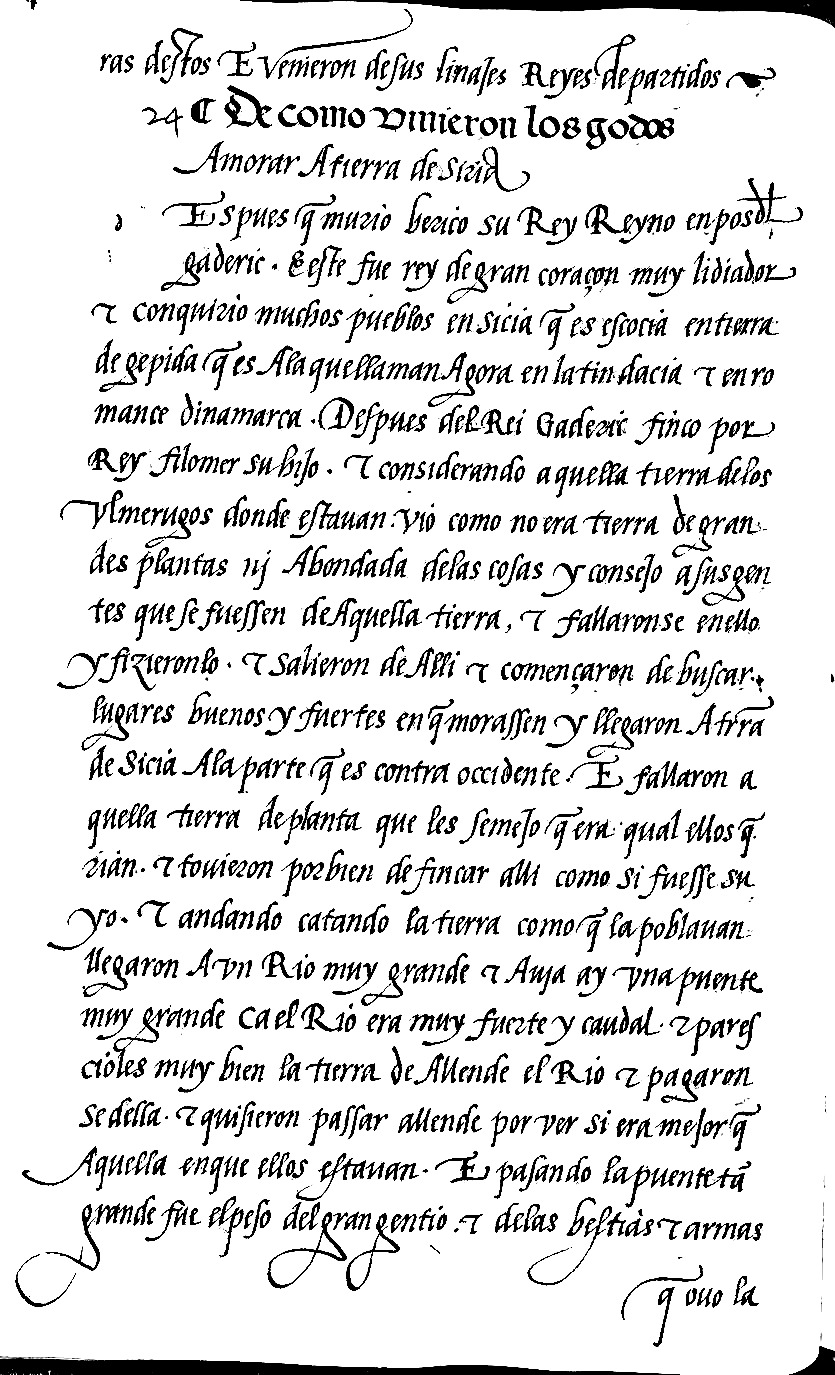 ras destos E venieron de sus linajes Reyes de partidos
24 ¶ De como vinieron los godos
Amorar A tierra de Siria
Espues q̄ murio berico su Rey Reyno en pos dł
gaderic. E este fue rey de gran coraçon muy lidiador
⁊ conquirio muchos pueblos en Sicia q̄ es escocia en tierra
de gepida q̄ es Ala que llaman Agora en latin dacia ⁊ en ro
mance dinamarca. Despues del Rei Gaderic finco por
Rey filomer su hijo. ⁊ considerando aquella tierra de los
Vlmerugos donde estauan. vio como no era tierra de gran
des plantas nj Abondada de las cosas y consejo a sus gen
tes que se fuessen de Aquella tierra, ⁊ fallaronse en ello
y fizieronlo. ⁊ salieron de Alli ⁊ començaron de buscar
lugares buenos y fuertes en q̄ morassen y llegaron A trr̄a
de Sicia Ala parte q̄ es contra occidente. E fallaron a
quella tierra de planta que les semejo q̄ era qual ellos q̄
rian. ⁊ touieron por bien de fincar alli como si fuesse su
yo. ⁊ andando catando la tierra como q̄ la poblauan
llegaron A vn Rio muy grande ⁊ Auja ay vna puente
muy grande Ca el Rio era muy fuerte y caudal. ⁊ pares
cioles muy bien la tierra de Allende el Rio ⁊ pagaron
se della. ⁊ quisieron passar allende por ver si era mejor q̄
Aquella en que ellos estauan. E pasando la puente tā
grande fue el peso del gran gentio. ⁊ de las bestias ⁊ armas
q̄ ouo la